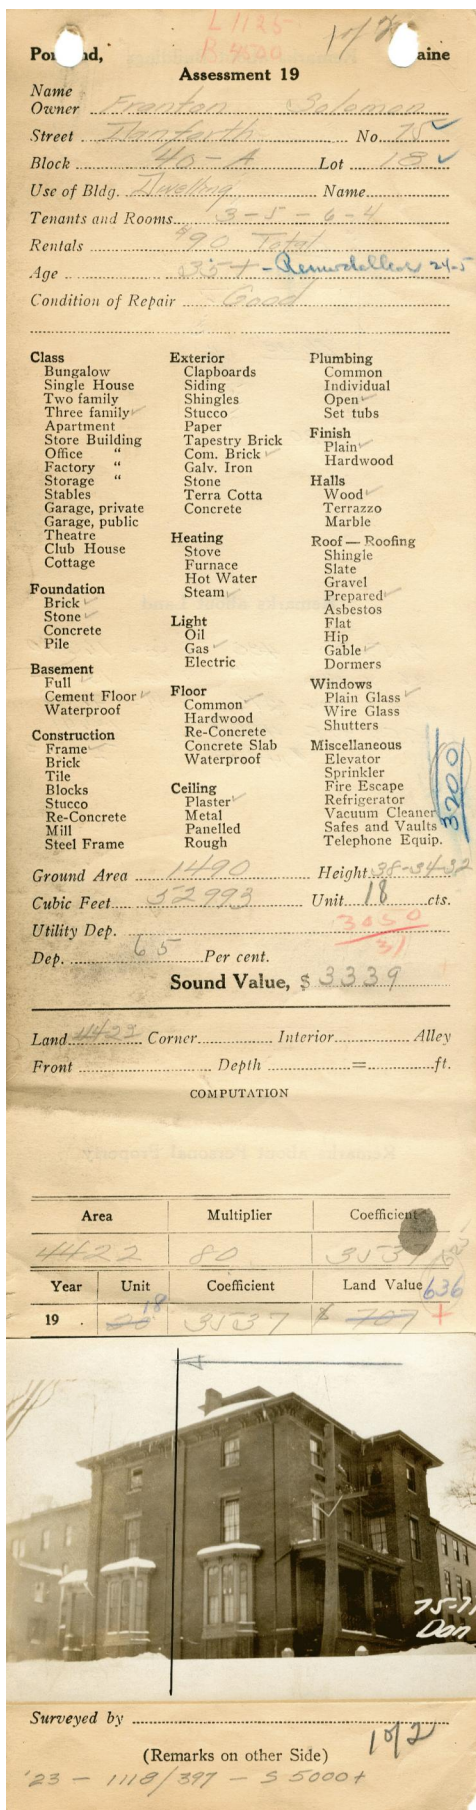 L 1125
B 4500
1 of 2
Portland, Maine
Assessment 19
Name
Owner Solomon
Street Danforth No. 75 ✓
Block 40-A Lot 18 ✓
Use of Bldg. Dwelling Name
Tenants and Rooms 3-5-6-4
Rentals $90 Total
Age 35+ - Remodelled 24-5
Condition of Repair Good
Class
Bungalow
Single House
Two family
Three family ✓
Apartment
Store Building
Office "
Factory "
Storage "
Stables
Garage, private
Garage, public
Theatre
Club House
Cottage
Foundation
Brick ✓
Stone ✓
Concrete
Pile
Basement
Full ✓
Cement Floor ✓
Waterproof
Construction
Frame ✓
Brick
Tile
Blocks
Stucco
Re-Concrete
Mill
Steel Frame
Exterior
Clapboards
Siding
Shingles
Stucco
Paper
Tapestry Brick
Com. Brick ✓
Galv. Iron
Stone
Terra Cotta
Concrete
Heating
Stove
Furnace
Hot Water
Steam ✓
Light
Oil
Gas ✓
Electric ✓
Floor
Common ✓
Hardwood
Re-Concrete
Concrete Slab
Waterproof
Ceiling
Plaster ✓
Metal
Panelled
Rough
Plumbing
Common
Individual
Open ✓
Set tubs
Finish
Plain ✓
Hardwood
Halls
Wood ✓
Terrazzo
Marble
Roof — Roofing
Shingle
Slate
Gravel
Prepared ✓
Asbestos
Flat
Hip
Gable ✓
Dormers
Windows
Plain Glass ✓
Wire Glass
Shutters
Miscellaneous
Elevator
Sprinkler
Fire Escape
Refrigerator
Vacuum Cleaner
Safes and Vaults
Telephone Equip.
3200
Ground Area 1490 Height 38-34-32
Cubic Feet 52993 Unit 18 cts.
Utility Dep. 3050
31
Dep. 65 Per cent.
Sound Value, $ 3339
Land 4423 Corner Interior Alley
Front Depth = ft.
COMPUTATION
Area Multiplier Coefficient
4422 80 3537
Year Unit Coefficient Land Value 636
19 20 18 3537 $ 707 +
75-7
Dan
Surveyed by
(Remarks on other Side)
1 of 2
'23 - 1118/397 - S 5000+